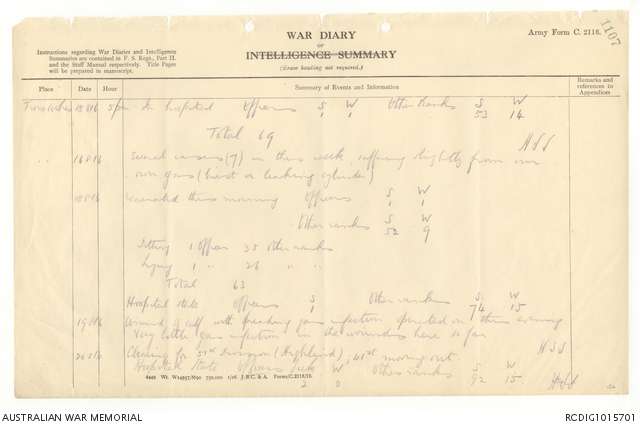 1107
WAR DIARY
or
INTELLIGENCE SUMMARY
(Erase heading not required.)
Army Form C. 2118.
Instructions regarding War Diaries and Intelligence
Summaries are contained in F. S. Regs., Part II.
and the Staff Manual respectively. Title Pages
will be prepared in manuscript.
Place
Date
Hour
Summary of Events and Information
Remarks and
references to
Appendices
15 8 16 5 pm In hospital Officers S W Other Ranks S W
1 1 53 14
Total 69
16 8 16 Several cases (7) in this week, suffering slightly from our
own gas (burst or leaking cylinder)
18 8 16 Evacuated this morning Officers S W
1 1
Other ranks S W
52 9
Sitting 1 Officer 35 other ranks
Lying 1 " 26 " "
Total 63
Hospital state Officers S Other ranks S W
1 74 15
19 8 16 Wound of calf with gas infection operated on this evening
Very little gas infection in the wounds here so far
20 8 16 Clearing for 51st Division (Highland), 41st moving out.
Hospital State Officers W Other ranks S W
2 0 92 15
AUSTRALIAN WAR MEMORIAL
RCDIG1015701